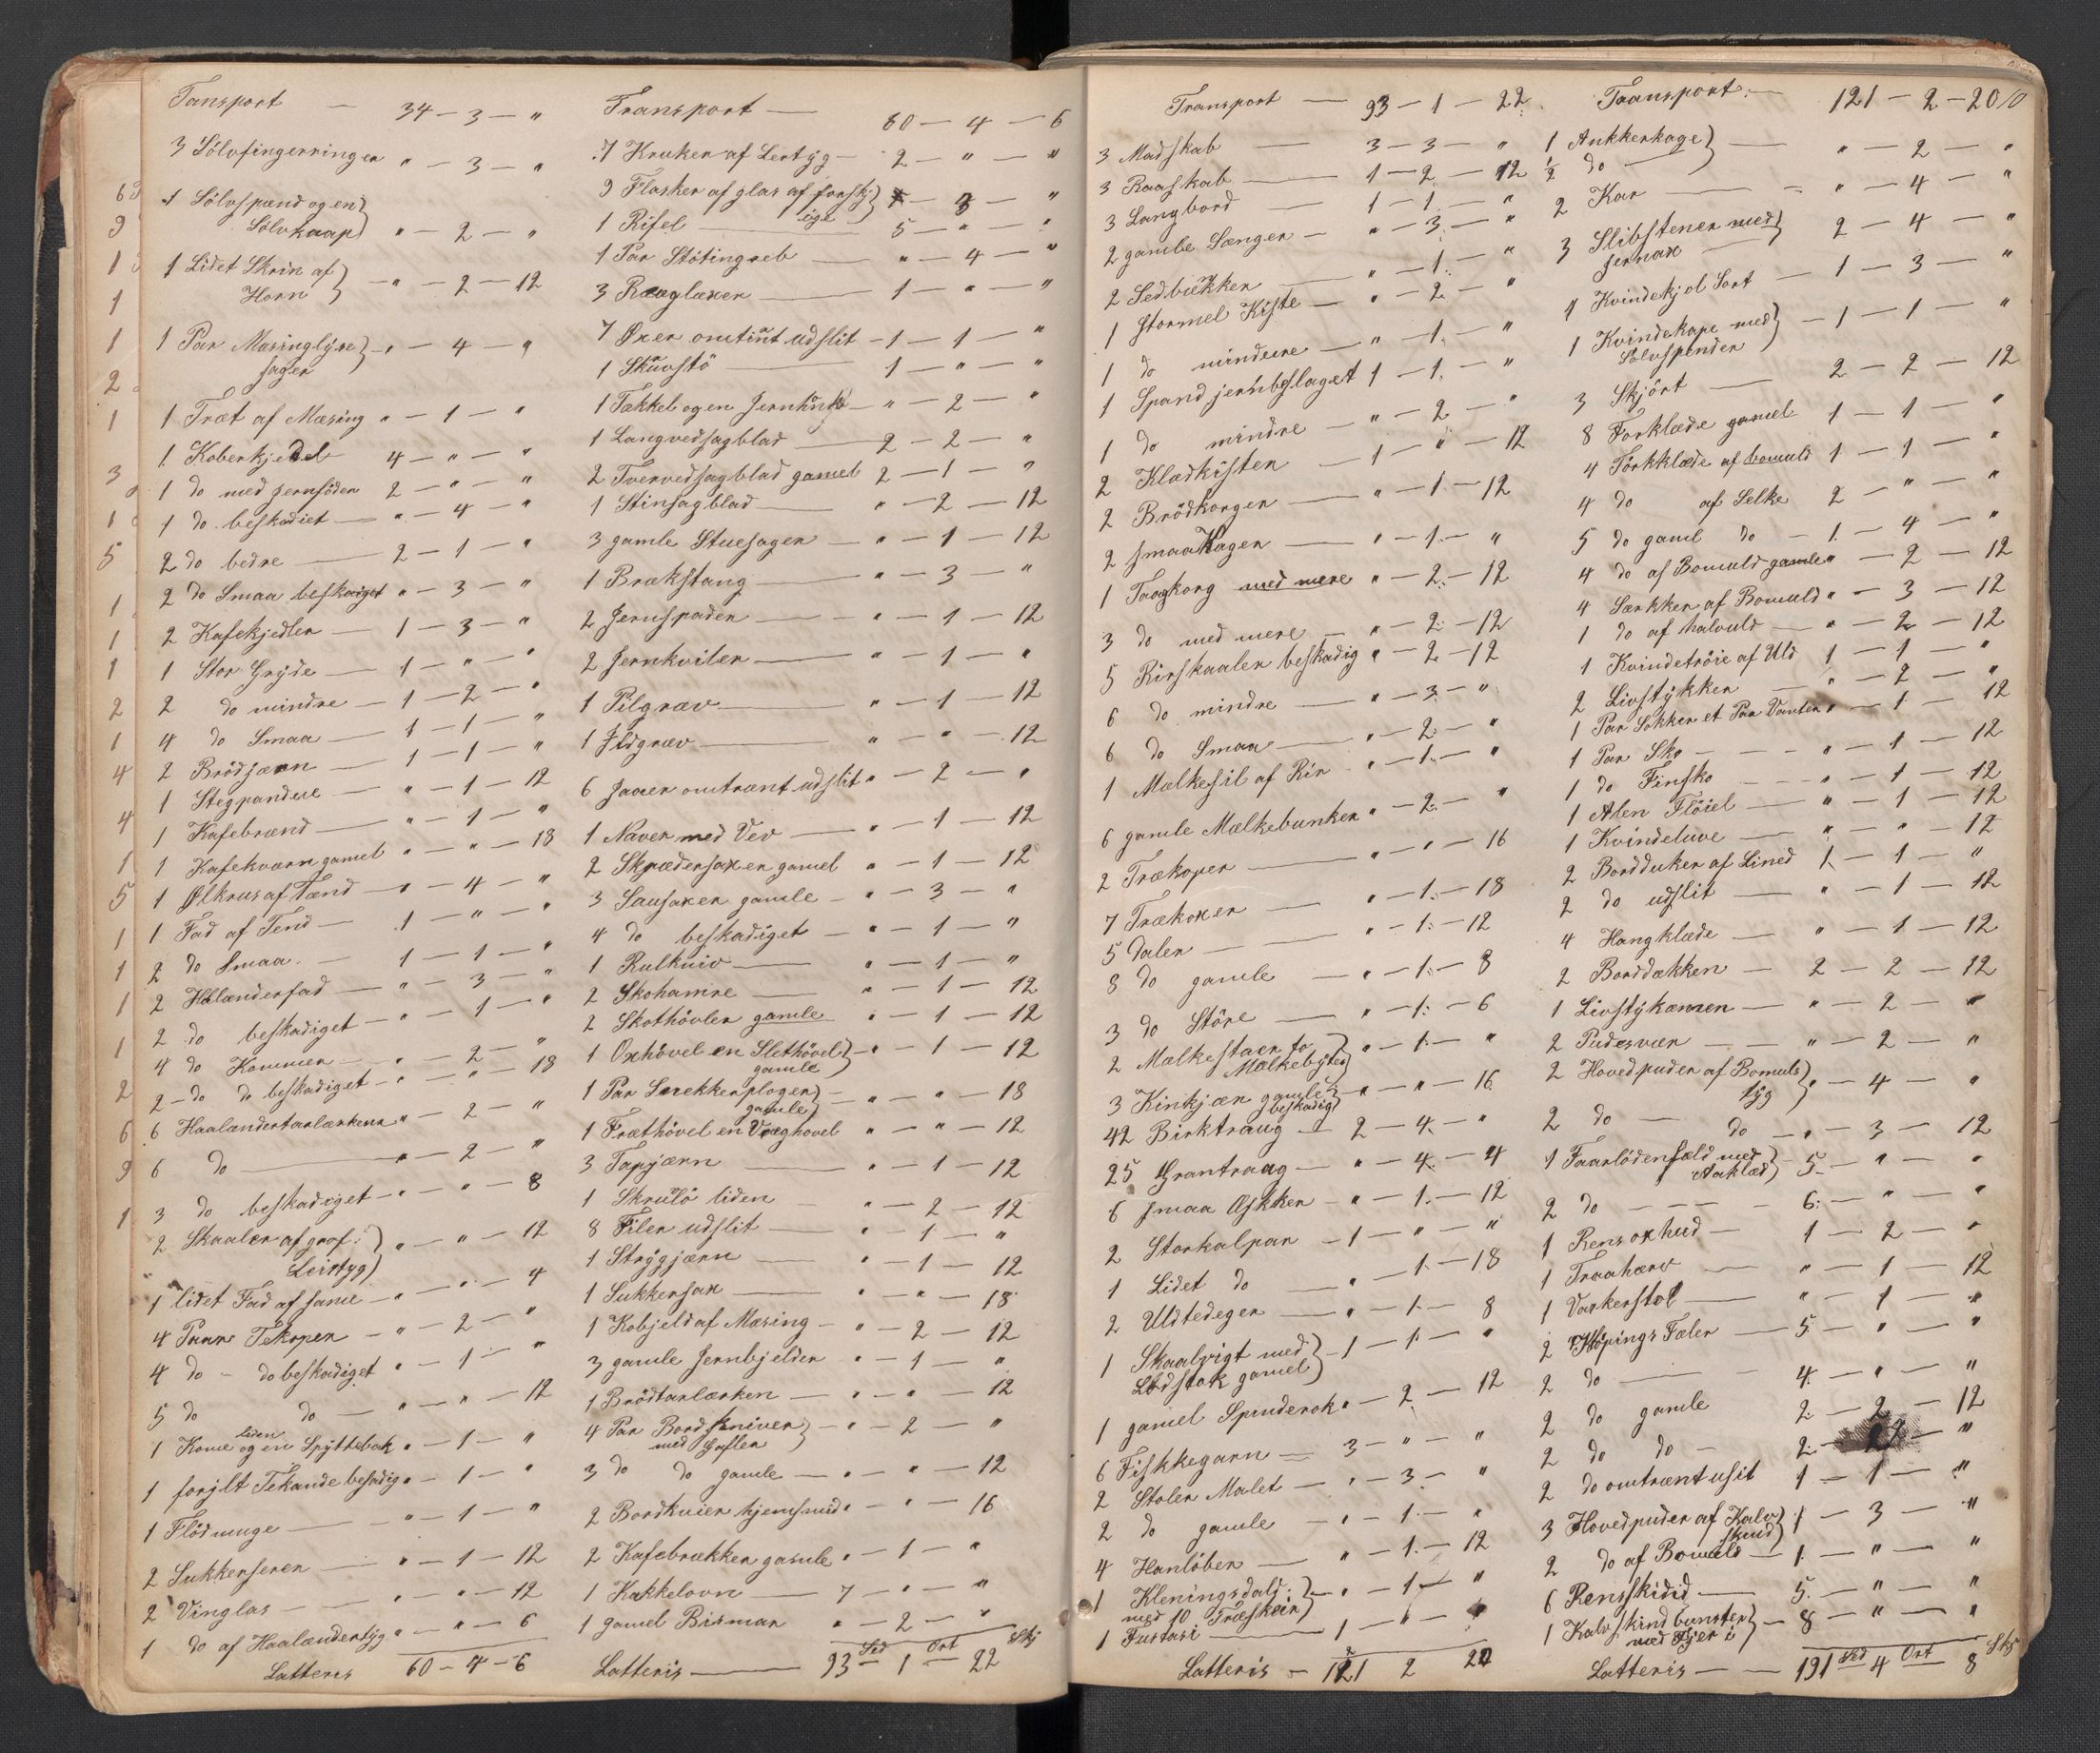 Tansport — 34 — 3 — "
3 Sölvfingerringer " — 3 — "
1 Sölvspænd og en
Sölvknap " — 2 — "
1 Lidet Skrin af
Horn — " — 2 — 12
1 Par Mæsinglyse
sager — " — 4 — "
1 Træt af Mæsing " — 1 — "
1 Koberkjedel 4 — " — "
1 do med Jernföder 2 — " — "
1 do beskadiet — " — 4 — "
2 do bedre — 2 — 1 — "
2 do Smaa beskadiget " — 3 — "
2 Kafekjedler — 1 — 3 — "
1 Stor Gryde — 1 — " — "
2 do mindre — 1 — 2 — "
4 do Smaa — 1 — 1 — "
2 Brödjærn — 1 — 1 — "
1 Stegpandue — " — 1 — 12
1 Kafebrænd — " — 1 — "
1 Kafekværn gamel " — " — 18
1 Ølkrus af Tænd — " — 4 — "
1 Fad af Tend — 1 — " — "
2 do Smaa — 1 — 1 — "
2 Holænderfad — " — 3 — "
2 do beskadiget — " — 1 — "
4 do Kommer — " — 2 — "
2 — do do beskadiget — " — " — 18
6 Haalændertarlærkener " — 2 — "
6 do — " — 2 — "
3 do beskadiget — " — " — 8
2 Skaaler af grof
Leirtyg " — " — 12
1 lidet Fad af same — " — " — 4
4 Paar Tekoper — " — 2 — "
4 do — do beskadiget " — 1 — "
5 do do — " — " — 12
1 Kome liden og en Spyttebak " — 1 — "
1 forjlt Tekande besadig " — 1 — "
1 Flödmuge — " — 1 — "
2 Sukkerserer — " — 1 — 12
2 Vinglas — " — " — 12
1 do af Haalændertyg " — " — 6
Latteris 60 — 4 — 6
Transport — 60 — 4 — 6
7 Kruker af Lertyg — 2 — " — "
9 Flasker af glas af forskj
ige — 3 — "
1 Rifel — 5 — " — "
1 Par Stötingreb — " — 4 — "
3 Ræuglaxer — 1 — " — "
7 Øxer omtint udslit — 1 — 1 — "
1 Skuvstö — 1 — " — "
1 Tækkel og en — " — 2 — "
1 Langvedsagblad — 2 — 2 — "
2 Tvervedsagblad gamel 2 — 1 — "
1 Stinsagblad — " — 2 — 12
3 gamle Stuesager — " — 1 — 12
1 Brækstang — " — 3 — "
2 Jernspader — " — 1 — 12
2 Jernkviler — " — 1 — "
1 Pilgrav — " — 1 — 12
1 Ildgrav — " — " — 12
6 Jaaer omtrænt udslit " — 2 — "
1 Naver med Vev — " — 1 — 12
2 Skrædersaxer gamel " — 1 — 12
3 Sausaxer gamle — " — 3 — "
4 do beskadiget — " — 1 — "
1 Rulkniv — " — 1 — "
2 Skohamre — " — 1 — 12
2 Skothövler gamle " — 1 — 12
1 Oxhövel en Slethövel
gamle — " — 1 — 12
1 Par Snekkerploger
gamle — " — " — 18
1 Fræthövel en Væghovel " — " — 12
3 Tapjærn — " — 1 — 12
1 Skrulö liden — " — 2 — 12
8 Filer udslit — " — 1 — "
1 Strygjærn — " — 1 — 12
1 Sukkersax — " — " — 18
1 Kobjeld af Mæsing — " — 2 — 12
3 gamle Jernbjelder " — 1 — "
1 Brödtarlærken — " — " — 12
4 Par Bordkniver
med Gafler — " — 2 — "
3 do do gamle — " — " — 12
2 Bordkuier hjemsmid " — " — 16
2 Kafebrækker gamle " — 1 — "
1 Kakkelovn — 7 — " — "
1 gamel Bismar " — 2 — "
Latteris — 93 Sed — 1 Ort — 22 Skj
Transport — 93 — 1 — 22
3 Madskab — 3 — 3 — "
3 Raaskab — 1 — 2 — 12
3 Langbord — 1 — 1 — "
2 gamle Sænger — " — 3 — "
2 Sedbukker — " — 1 — "
1 Stormel Kiste — " — 2 — "
1 do mindere — " — 1 — "
1 Spand jernbeslaget 1 — 1 — "
1 do mindre — " — 2 — "
2 Klædkister — 1 — " — 12
2 Brödkorger — " — 1 — 12
2 smaa Kager — " — 1 — "
1 Taagkorg med mere " — 2 — 12
3 do med mere — " — 2 — 12
5 Rirskaaler beskadig " — 2 — 12
6 do mindre — " — 3 — "
6 do Smaa — " — 2 — "
1 Mælkesil af Rir " — 1 — "
6 gamle Mælkebunker " — 2 — "
2 Trækoper — " — " — 16
7 Trækoxer — " — 1 — 18
5 Daler — " — 1 — 12
8 do gamle — " — 1 — 8
3 do Störe — " — 1 — 6
2 Mælkestaer to
Mælkebytter — " — 1 — "
3 Kinkjær gamle
beskadig — " — " — 16
42 Birktraug — 2 — 4 — "
25 Grantraag — " — 4 — 4
6 smaa Æskker — " — 1 — 12
2 Storkalpar — 1 — " — "
1 Lidet do — " — 1 — 18
2 Uldtedeger — " — 1 — 8
1 Skaalvigt med
Lodstok gamel — 1 — 1 — "
1 gamel Spinderok " — 2 — 12
6 Fiskkegarn — 3 — " — "
2 Stoler Malet — " — 3 — "
2 do gamle — " — 1 — "
4 Hanlöber — " — 1 — 12
1 Kleningsdald
med 10 Træskeir — " — 1 — "
1 Fustasi — 1 — " — "
Latteris — 121 2 22
Transport — 121 — 2 — 20
1 Ankkerkage
½ do — " — 2 — "
2 Kar — " — 4 — "
3 Slibstener med
Jernax — 2 — 4 — "
1 Kvindekjol Sort — 1 — 3 — "
1 Kvindekape med
Sölvspender — 1 — 1 — "
3 Skjört — 2 — 2 — 12
8 Forklæde gamel 1 — 1 — "
4 Törkklæde af bomuld 1 — 1 — "
4 do af Selke 2 — " — "
5 do gaml do — 1 — 4 — "
4 do af Bomuld gamle " — 2 — 12
4 Særkker af Bomuld " — 3 — 12
1 do af halvuld — " — 2 — 12
1 Kvindetröie af Uld 1 — 1 — "
2 Livstykker — " — 2 — "
1 Par Sokker et Par Vanter " — 1 — 12
1 Par Sko — " — 1 — 12
1 do Finsko — " — 1 — 12
1 Alen Flöiel — " — 1 — 12
1 Kvindeluve — " — " — 12
2 Bordduker af Lined 1 — 1 — "
2 do udslit — " — 1 — 12
4 Hangklæde — " — 1 — 12
2 Borddækken — 2 — 2 — 12
1 Livstykæmen — " — 2 — "
2 Pudesvær — " — 2 — "
2 Hovedpuder af Bomuls
tyg " — 4 — "
2 do — do — " — 3 — 12
1 Faarlödenfæld med
Aaklæd — 5 — " — "
2 do — 6 — " — "
1 Rensoxhud — 1 — 2 — "
1 Traaharv — " — 1 — 12
1 Varkerstol — " — 1 — "
2 Köpings Fæler — 5 — " — "
2 do — 4 — " — "
2 do gamle 2 — 2 — 12
2 do do — 2 — — "
2 do omtrænt usit 1 — 1 — "
3 Hovedpuder af Kalv
skind 1 — 3 — "
2 do af Bomuld — 1 — " — "
6 Rensskidid — 5 — " — "
1 Kalvskind bunster
med Fjer i — 8 — " — "
Latteris — 191 Sed 4 Ort 8 Skj